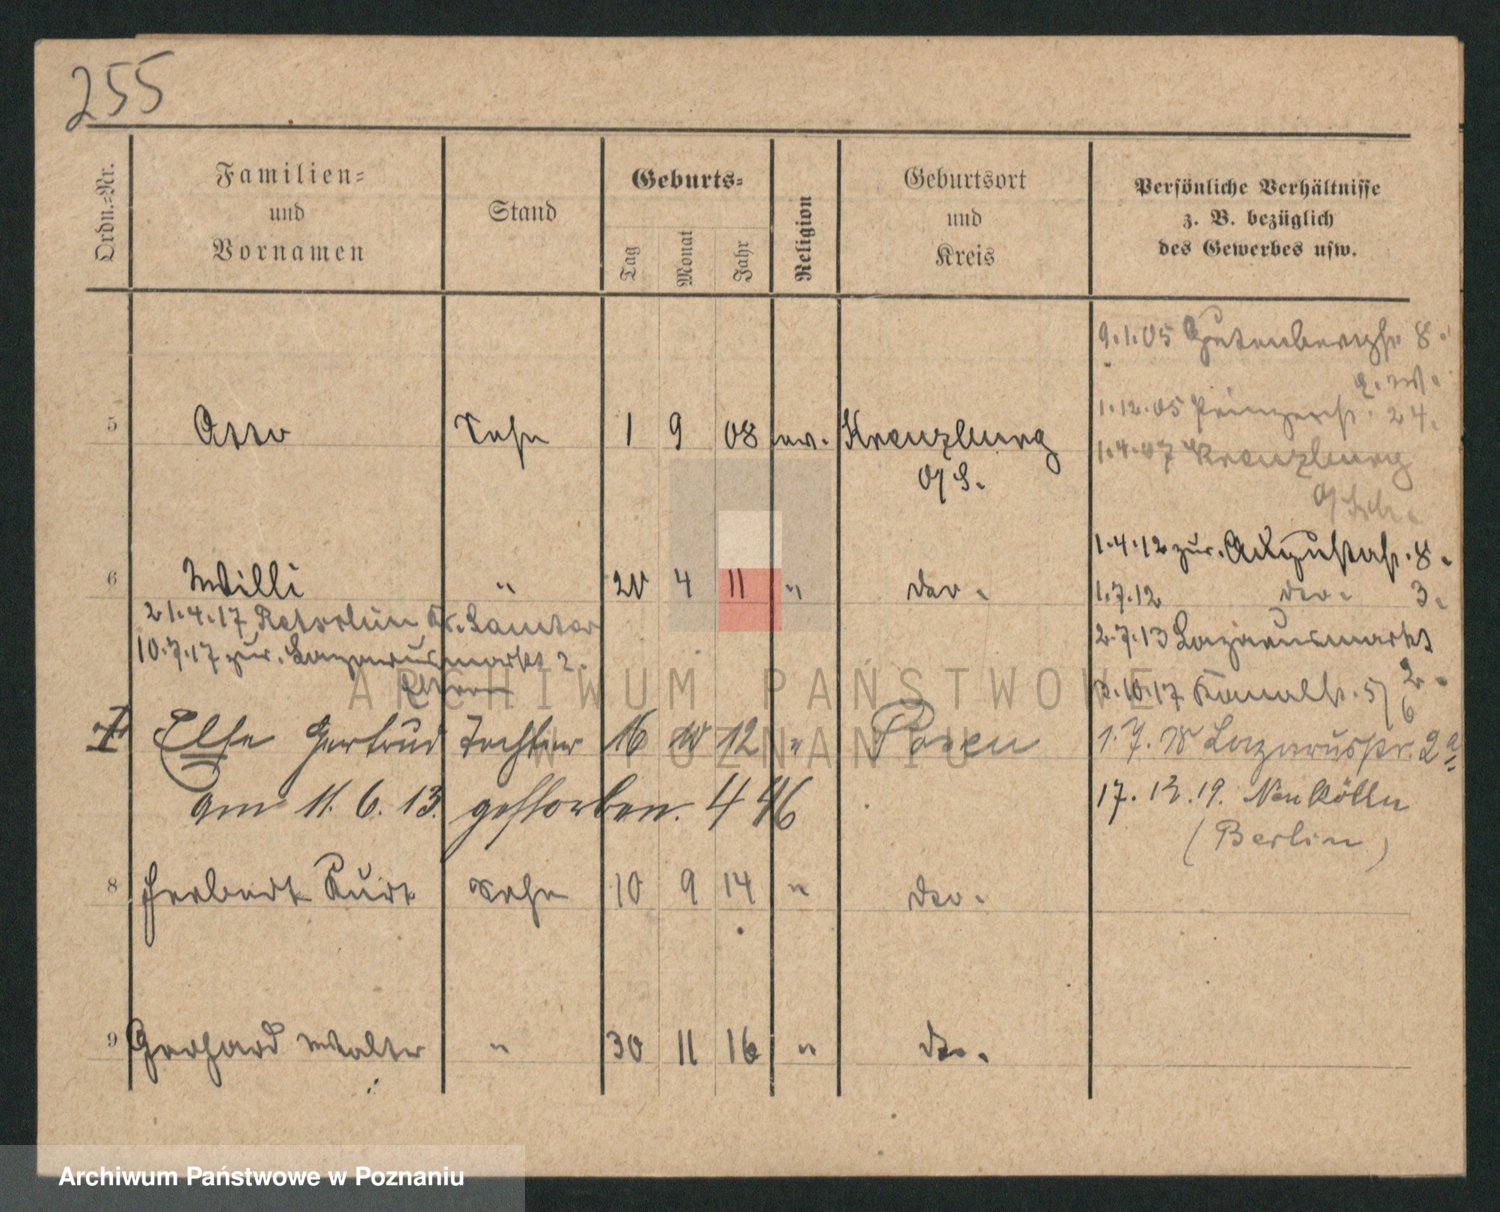 255
Ordn.-Nr.
Familien-
und
Vornamen
Stand
Geburts-
Tag
Monat
Jahr
Religion
Geburtsort
und
Kreis
Persönliche Verhältnisse
z. B. bezüglich
des Gewerbes usw.
9.1.05 Gutenbergstr. 8.
1.12.05 Prinzenstr. 24.
5 Otto Sohn 1 9 08 ev. Kreuzburg
O/S.
1.4.07 Kreuzburg
O/Sch.
1.4.12 zur. Augustastr. 8.
6 Willi " 20 4 11 " do. 1.7.12 do. 3.
21.4.17 Kr. Samter
10.7.17 zur. Lazarusmarkt 2.
2.7.13 Lazarusmarkt
2.
2.10.17 Kanalstr. 5/6
7 Else Gertrud Tochter 16 10 12 " Posen 1.7.18 Lazarusstr. 2a
am 11.6.13. gestorben. 446
17.12.19. Neukölln
(Berlin)
8 Herbert Kurt Sohn 10 9 14 " do.
9 Gerhard Walter " 30 11 16 " do.
ARCHIWUM PAŃSTWOWE
W POZNANIU
Archiwum Państwowe w Poznaniu